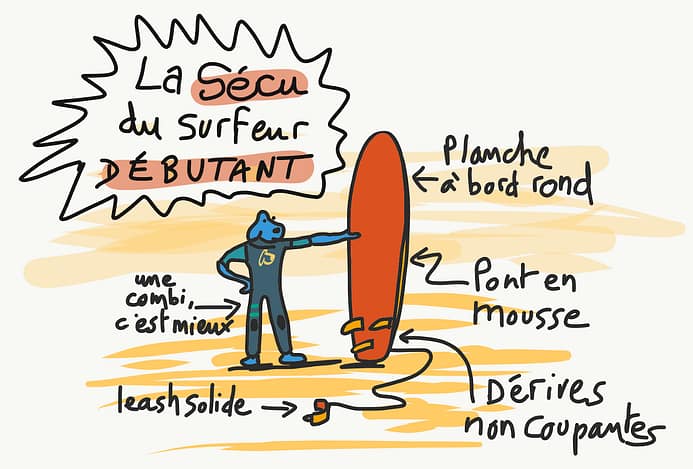 La Sécu
du surfeur
DÉBUTANT
Planche
à bord rond
une
combi,
c'est mieux
Pont en
mousse
leash solide
Dérives
non coupantes